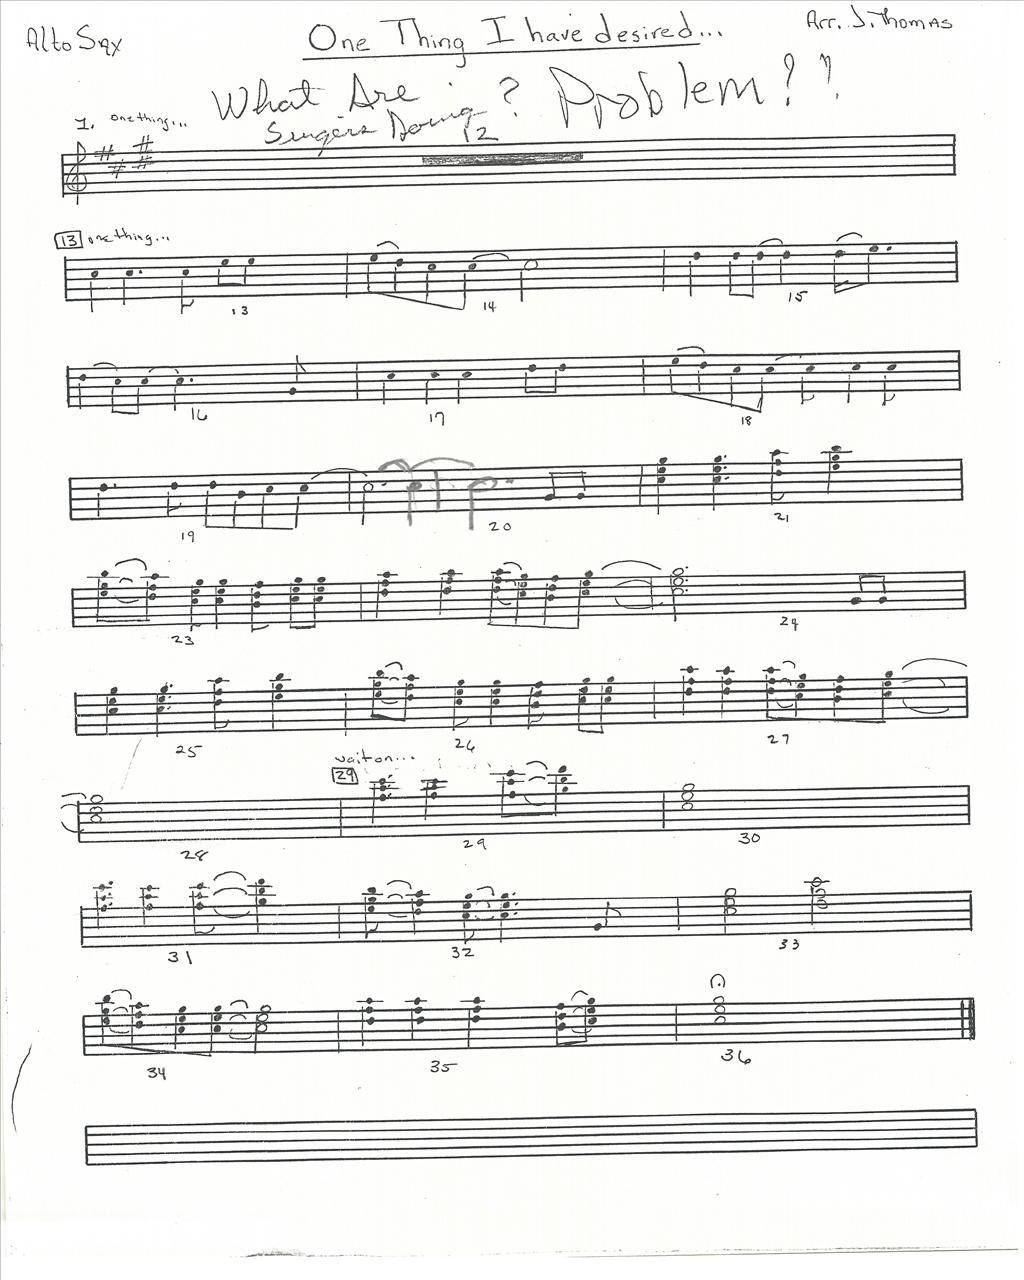 Alto Sax
One Thing I have desired...
Arr. J. Thomas
What Are ? Problem?!
Singers Doing
1. one thing...
12
13 one thing...
13 14 15
16 17 18
19 20 21
23 24
25 26 27
wait on...
29
28 29 30
31 32 33
34 35 36